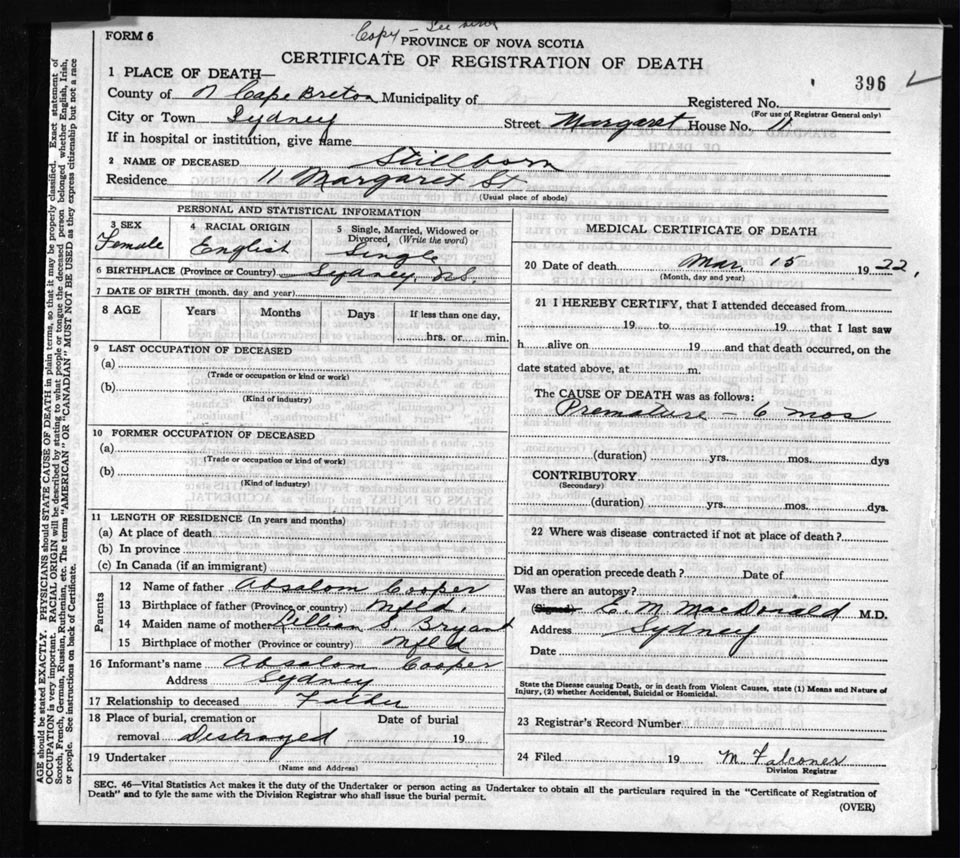 FORM 6
Copy - See
PROVINCE OF NOVA SCOTIA
CERTIFICATE OF REGISTRATION OF DEATH
396
1 PLACE OF DEATH—
County of Cape Breton Municipality of Registered No.
(For use of Registrar General only)
City or Town Sydney Street Margaret House No. 11
If in hospital or institution, give name
2 NAME OF DECEASED Stillborn
Residence 11 Margaret St.
(Usual place of abode)
PERSONAL AND STATISTICAL INFORMATION
3 SEX 4 RACIAL ORIGIN 5 Single, Married, Widowed or Divorced (Write the word)
Female English Single
6 BIRTHPLACE (Province or Country) Sydney, N.S.
7 DATE OF BIRTH (month, day and year)
8 AGE Years Months Days If less than one day,
hrs. or min.
9 LAST OCCUPATION OF DECEASED
(a)
(Trade or occupation or kind or work)
(b)
(Kind of industry)
10 FORMER OCCUPATION OF DECEASED
(a)
(Trade or occupation or kind of work)
(b)
(Kind of industry)
11 LENGTH OF RESIDENCE (In years and months)
(a) At place of death
(b) In province
(c) In Canada (if an immigrant)
Parents
12 Name of father Absalom Cooper
13 Birthplace of father (Province or country) Nfld.
14 Maiden name of mother Lillian S Bryant
15 Birthplace of mother (Province or country) Nfld
16 Informant's name Absalom Cooper
Address Sydney
17 Relationship to deceased Father
18 Place of burial, cremation or Date of burial
removal Destroyed 19
19 Undertaker
(Name and Address)
MEDICAL CERTIFICATE OF DEATH
20 Date of death Mar. 15 1922.
(Month, day and year)
21 I HEREBY CERTIFY, that I attended deceased from
19 to 19 that I last saw
h alive on 19 and that death occurred, on the
date stated above, at m.
The CAUSE OF DEATH was as follows:
Premature - 6 mos
(duration) yrs. mos. dys
CONTRIBUTORY
(Secondary)
(duration) yrs. mos. dys.
22 Where was disease contracted if not at place of death?
Did an operation precede death? Date of
Was there an autopsy?
(Signed) C. M. MacDonald M.D.
Address Sydney
Date
State the Disease causing Death, or in death from Violent Causes, state (1) Means and Nature of
Injury, (2) whether Accidental, Suicidal or Homicidal.
23 Registrar's Record Number
24 Filed 19 M. Falconer
Division Registrar
SEC. 46—Vital Statistics Act makes it the duty of the Undertaker or person acting as Undertaker to obtain all the particulars required in the "Certificate of Registration of
Death" and to fyle the same with the Division Registrar who shall issue the burial permit.
(OVER)
AGE should be stated EXACTLY. PHYSICIANS should STATE CAUSE OF DEATH in plain terms, so that it may be properly classified. Exact statement of
OCCUPATION is very important. RACIAL ORIGIN will be described by stating to what people or tongue the deceased person belonged whether English, Irish,
Scotch, French, German, Russian, Ruthenian, etc. The terms "AMERICAN" OR "CANADIAN" MUST NOT BE USED as they express citizenship but not a race
or people. See instructions on back of Certificate.